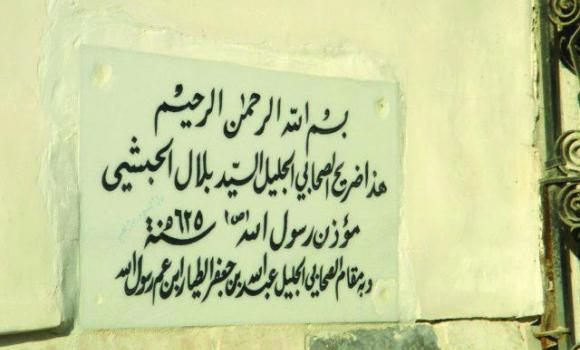 بسم الله الرحمن الرحيم
هذا ضريح الصحابي الجليل السيد بلال الحبشي
مؤذن رسول الله (ص) سنة ٦٢٥ هـ
وبه مقام الصحابي الجليل عبدالله بن جعفر الطيار ابن عم رسول الله